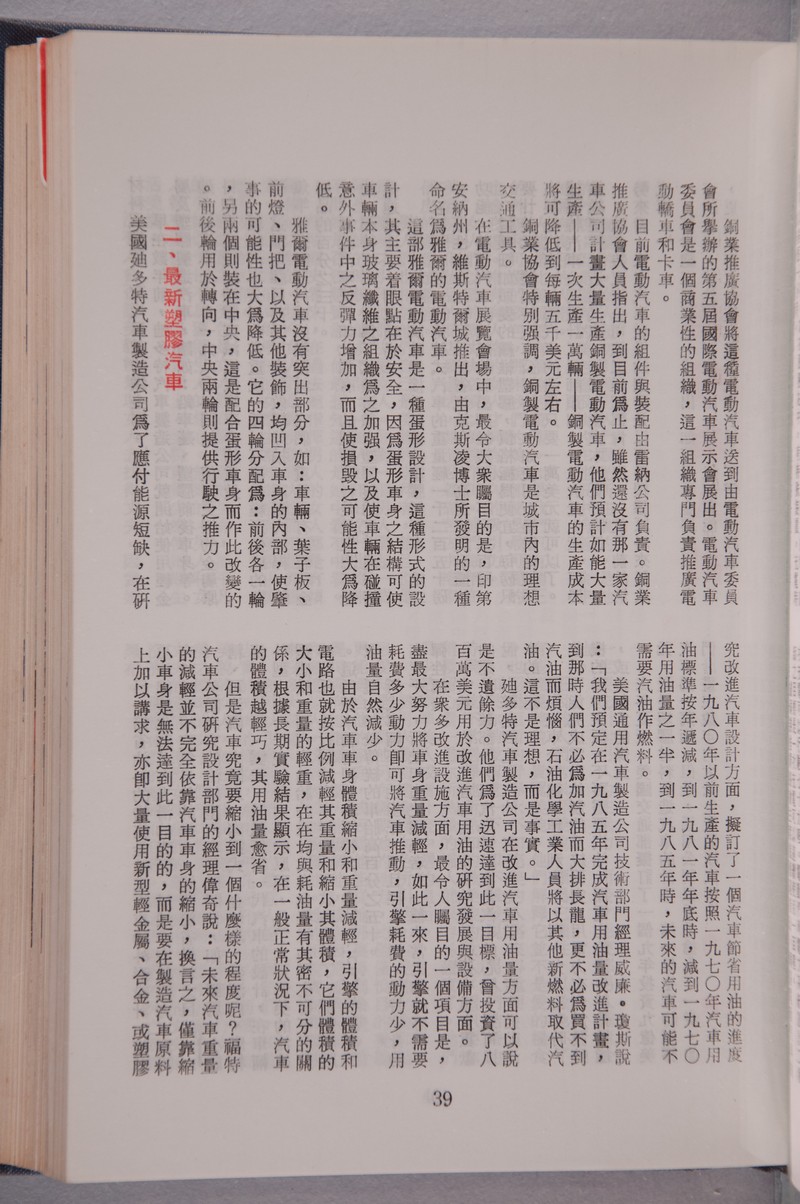 銅業推廣協會將這種電動汽車送到由電動汽車委員
會所舉辦的第五屆國際電動汽車展示會展出。電動汽車
委員會是一個商業性的組織，這一組織專門負責推廣電
動轎車和卡車。
目前電動汽車的組件與裝配由雷納公司負責。銅業
推廣協會人員指出，到目前爲止，雖然還沒有那一家汽
車公司計畫大量生產銅製電動汽車，他們預計如能大量
生產——一次生產一萬輛——銅製電動汽車的生產成本
將可降低到每輛五千美元左右。
銅業協會特別强調，銅製電動汽車是城市內的理想
交通工具。
在電動汽車展覽會場中，最令大衆矚目的是，印第
安納州，維斯特爾城推出，由克斯凌博士所發明的一種
命名爲雅爾的電動汽車。
這部雅爾電動汽車是一種蛋形設計，這種形式的設
計，其主要着眼點在於安全，因爲蛋形車身之結構可使
車輛本身玻璃纖維之組織爲之加强，以及使車輛在碰撞
意外事件中之反彈力增加，而且使損毀之可能性大爲降
低。
雅爾電動汽車沒有突出部分，如：車輛、葉子板、
前燈、門把、以及其他裝飾，均凹入車身的內部，使肇
事的可能性也大爲降低。它的四輪分配爲：前後各一輪
，另兩個則裝在中央，這是配合蛋形車身而作此改變的
。前後輪用於轉向，中央兩輪則提供行駛之推力。
二、最新塑膠汽車
美國廸多特汽車製造公司爲了應付能源短缺，在研
究改進汽車設計方面，擬訂了一個汽車節省用油的進度
——一九八〇年以前生產的汽車按照一九七〇年汽車用
油標準按年遞減，到一九八一年年底時，減到一九七〇
年用油量之一半，到一九八五年時，未來的汽車可能不
需要汽油作燃料。
美國通用汽車製造公司技術部門經理威廉。瓊斯說
：「我們預定在一九八五年完成汽車用油量改進計畫，
到那時人們不必爲加汽油而大排長龍，更不必爲買不到
汽油而煩惱，石油化學工業人員將以其他新燃料取代汽
油。這不是理想，而是事實。」
廸多特汽車製造公司在改進汽車用油量方面可以說
是不遺餘力。他們爲了迅速達到此一目標，曾投資了八
百萬美元用於改進汽車用油的研究發展與設備方面。
在衆多改進設施方面，最令人矚目的一個項目是，
盡最大努力將車身重量減輕，如此一來，引擎就不需要
耗費多少動力卽可將汽車推動，引擎耗費的動力少，用
油量自然減少。
由於汽車車身體積縮小和重量減輕，引擎的體積和
電路也就按比例減輕其重量和縮小其體積，它們體積的
大小和重量的輕重，在在均與耗油量有其密不可分的關
係，根據長期實驗結果顯示，在一般正常狀況下，汽車
的體積越輕巧，其用油量愈省。
但是汽車究竟要縮小到一個什麼樣的程度呢？福特
汽車公司研究設計部門的經理偉奇說：「未來汽車重量
的減輕並不完全依靠汽車車身的縮小，換言之，僅靠縮
小車身是無法達到此一目的的，而是要在製造汽車原料
上加以講求，亦卽大量使用新型輕金屬、合金、或塑膠
39